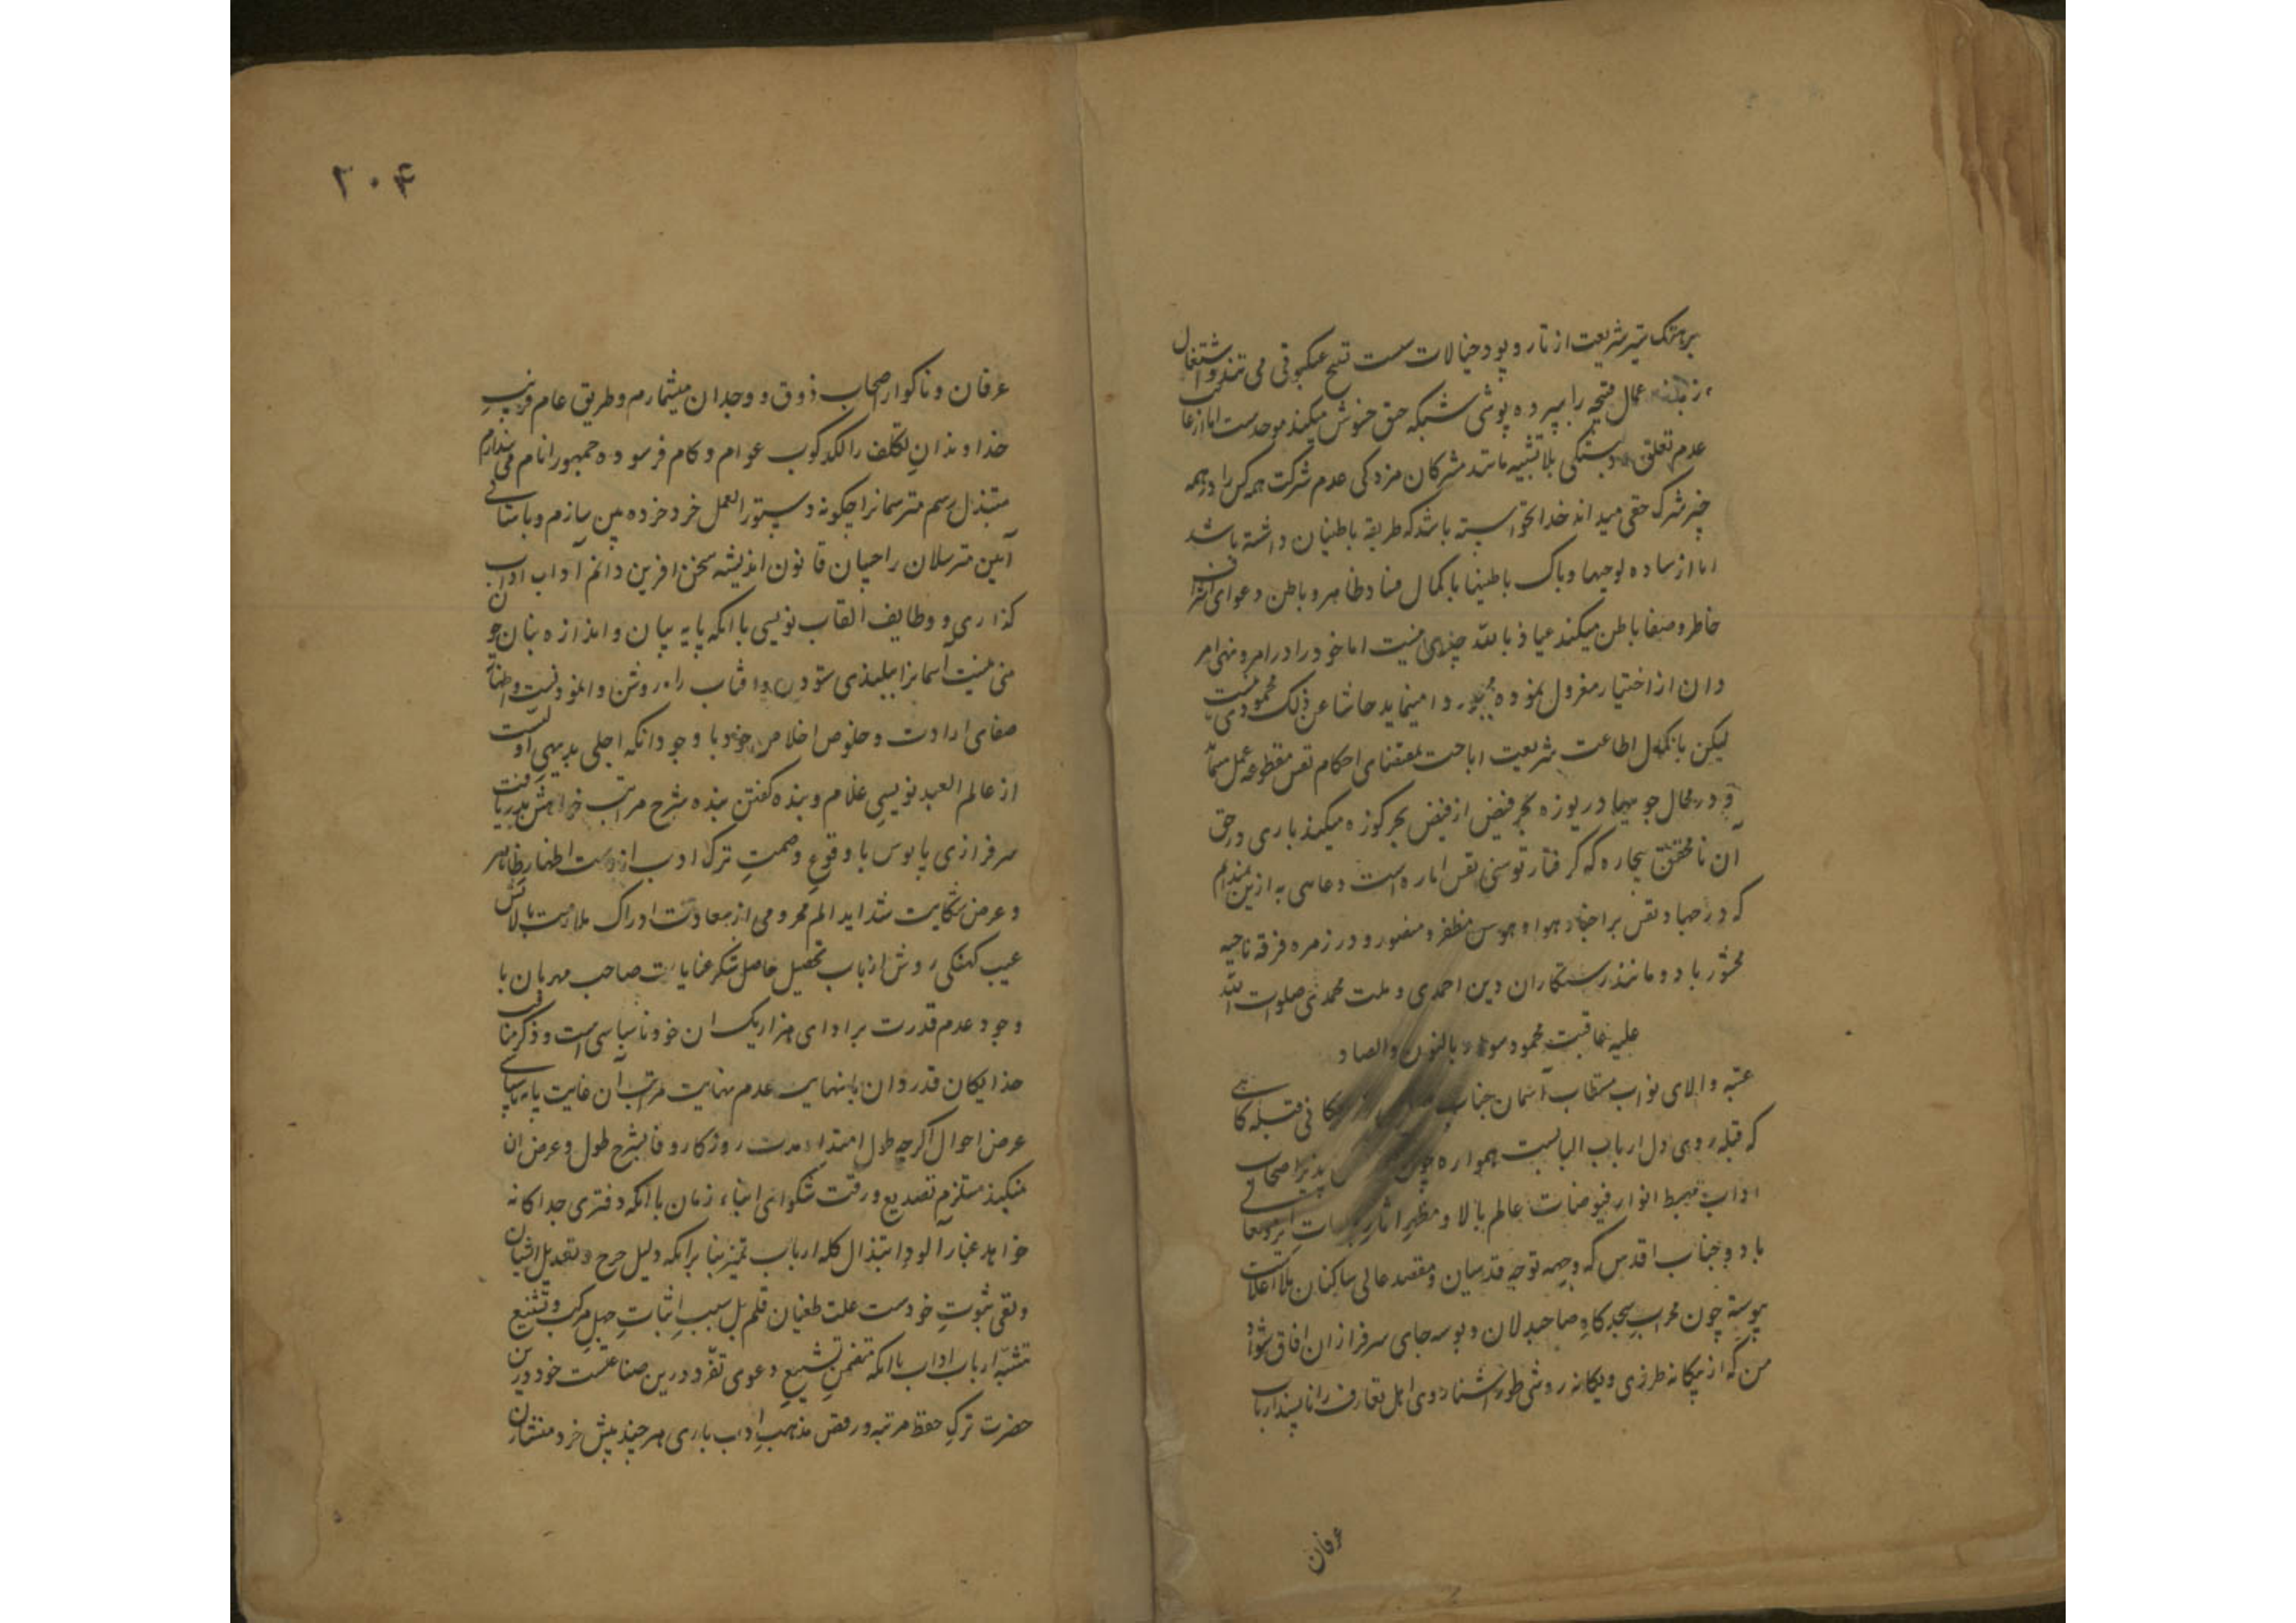 بر هتک ستر شریعت از تار و پود خیالات سست نسج عنکبوتی می تند و اشتغال
عمال قبیحه را بپرده پوشی شبکه حق خوش میکند موحدست اما از عا
عدم تعلق بلا تشبیه مانند مشرکان مزدکی عدم شرکت همه کس را در همه
چیز شرک حقی میداند خدا نخواسته باشد که طریقه باطنیان داشته باشد
اما از ساده لوحیها و باک باطنیها با کمال فساد ظاهر و باطن دعوای
خاطر و صفا باطن میکند عیاذ بالله جبری نیست اما خود را در امر و نهی امر
دان از اختیار معزول نموده مجبور وا مینماید حاشا عن ذلک محمودی نیست
لیکن بانکول اطاعت شریعت اباحت بمقتضای احکام نفس مقطوعه عمل
و در محال جوییها دریوزه بحر فیض از فیض بحر کوزه میکند باری در حق
آن نا محقق بیچاره که گرفتار توسنی نفس اماره است دعاهی به ازین ندیدم
که در جهاد نفس بر اجناد هوا و هوس مظفر و منصور و در زمره فرقه ناجیه
محشور باد و مانند رستکاران دین احمدی و ملت محمدی صلوات الله
علیه عاقبت محمود بالنون والصاد
عتبه والای نواب مستطاب آسمان جناب قبله گاهی
که قبله روی دل ارباب الباب ست همواره چون پذیر اصحاب
اداب مهبط انوار فیوضات عالم بالا و مظهر آثار
باد و جناب اقدس که وجهه توجه قدسیان و مقصد عالی ساکنان ملا اعلاست
پیوسته چون محراب سجدگاه صاحبدلان و بوسه جای سرفرازان افاق شواد
من که از بیکانه طرزی و یکانه روشی طور اشنا روی اهل تعارف را ناپسند ارباب
عرفان
۲۰۴
عرفان و ناکوار اصحاب ذوق و وجدان میشمارم و طریق عام فریب
خداوندان تکلف را لکدکوب عوام و کام فرسوده جمهور انام می پندارم
مبتذل رسم مترسمانرا چگونه دستور العمل خرد خرده بین سازم و باستانی
آیین مترسلان را چسان قانون اندیشه سخن افرین دانم آداب اداب
گذاری و وظایف القاب نویسی با انکه پایه بیان و اندازه بنان چو
منی نیست آسمانرا ببلندی ستودن و افتاب را بروشنی وانمودنست و اظهار
صفای ارادت و خلوص اخلاص خود با وجود انکه اجلی بدیهی اولیست
از عالم العبد نویسی غلام و بنده کفتن بنده شرح مراتب خواهش دریافت
سرفرازی پابوس با وقوع وصمت ترک ادب از دست اظهار ظاهر
و عرض شکایت شداید الم محرومی از سعادت ادراک ملازمت بالاتش
عیب کهنکی روش ارباب تحصیل حاصل شکر عنایات صاحب مهربان با
وجود عدم قدرت بر ادای هزار یک ان خود ناسپاسی است و ذکر مناقب
خدایکان قدردان با نهایت عدم نهایت مراتب آن غایت پایه ناسپاسی
عرض احوال اگرچه طول امتداد مدت روزکار وفا بشرح طول و عرض ان
نمیکند مستلزم تصدیع و رقت شکوای ابناء زمان با انکه دفتری جداکانه
خواهد غبار آلود ابتذال کله ارباب تمیز بنا برانکه دلیل جرح و تعدیل اقران
و نفی ثبوت خودست علت طغیان قلم بل سبب اثبات جهل مرکب و تشنیع
تشبه ارباب اداب با انکه متضمن تشییع دعوی تفرد درین صناعت خود درین
حضرت ترک حفظ مرتبه و رفض مذهب اداب باری هر چند پیش خرد منشان